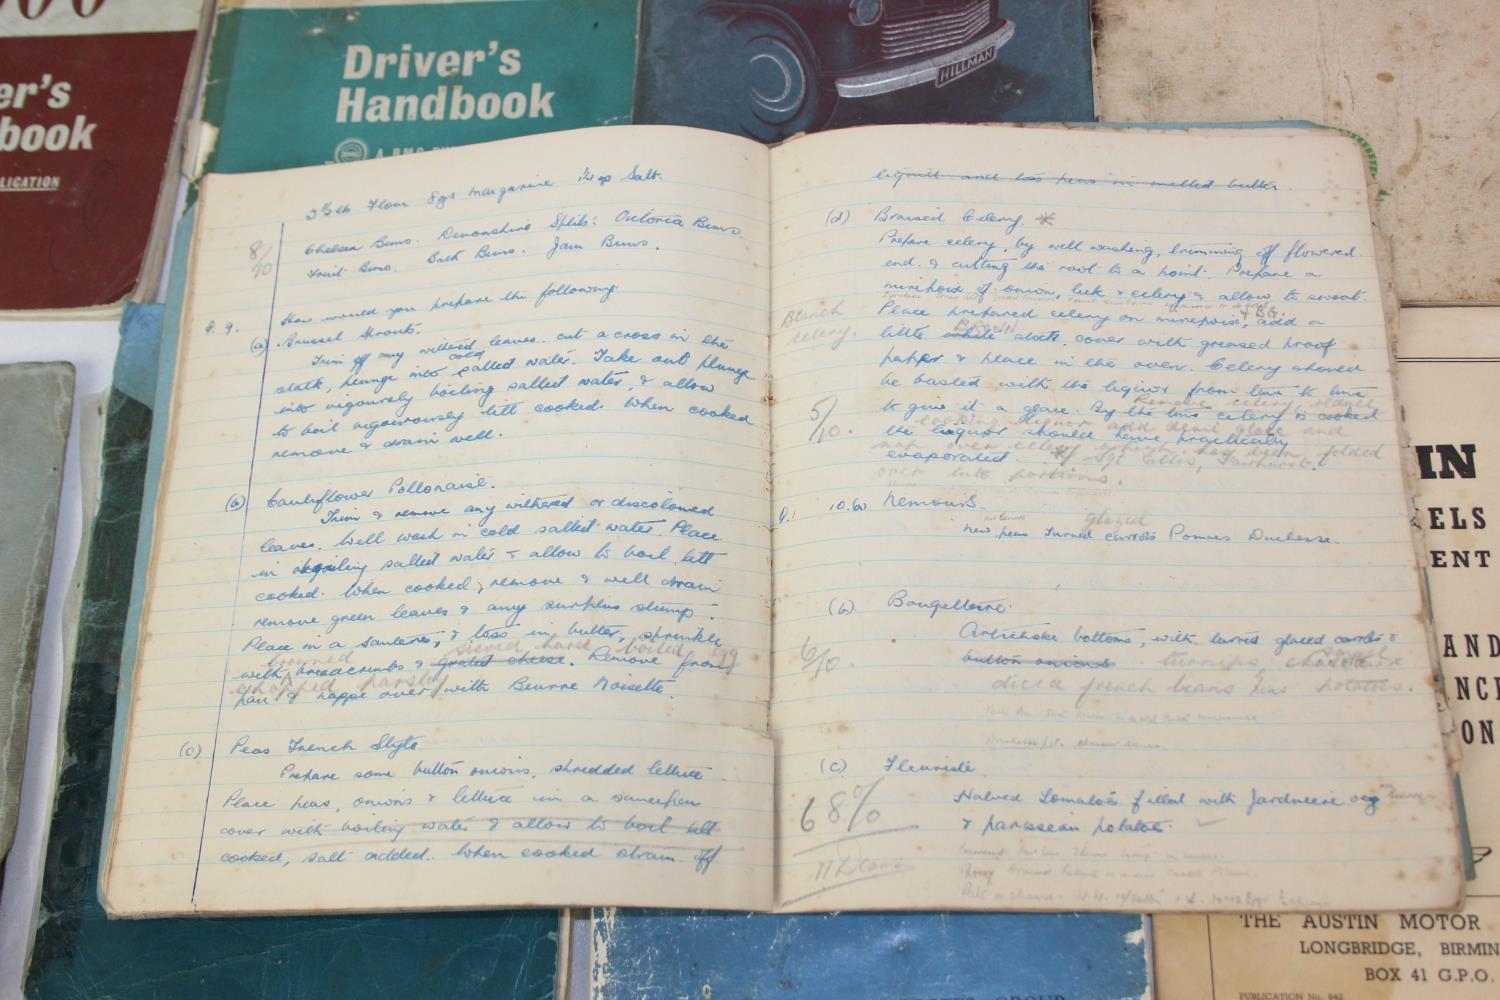 er's
book
LICATION
Driver's
Handbook
HILLMAN
3½ lb Flour 8ozs margarine Salt.
8/10
Chelsea Buns. Devonshire Splits: Victoria Buns
Fruit Buns. Bath Buns. Jam Buns.
How would you prepare the following
Q. 9.
(a) Brussel Sprouts.
Trim off any withered leaves. cut a cross in the
stalk, plunge into cold salted water. Take out plunge
into vigorously boiling salted water, & allow
to boil vigorously till cooked. When cooked
remove & drain well.
(b) Cauliflower Pollonaise.
Trim & remove any withered or discoloured
leaves. Well wash in cold salted water. Place
in boiling salted water & allow to boil till
cooked. When cooked, remove & well drain
remove green leaves & any surplus stump.
Place in a sauteres, & toss in butter, sprinkle
browned sieved hard boiled egg
with breadcrumbs & grated cheese. Remove from
chopped parsley
pan & nappe over with Beurre Noisette.
(c) Peas French Style
Prepare some button onions, shredded lettuce
Place peas, onions & lettuce in a saucepan
cover with boiling water & allow to boil till
cooked, salt added. When cooked strain off
liquid and toss peas in melted butter.
(d) Braised Celery *
Prepare celery, by well washing, trimming off flowered
end. & cutting the root to a point. Prepare a
mirepoix of onion, leek & celery & allow to sweat.
Blanch
celery.
Place prepared celery on mirepoix, & BG. add a
BROWN
little white stock. cover with greased proof
paper & place in the oven. Celery should
be basted with the liquor from time to time
5/10.
Remove celery, reduce
to give it a glaze. By the time celery is cooked
cooking liquor add demi glace and
the liquor should have practically
nap over celery which has been folded
evaporated. * Sgt Ellis,
over into portions.
Q.1 10.(a) Nemours.
glazed
New peas Turned carrots Pommes Duchesse.
(b) Bougettiere.
6/10.
Artichoke bottoms, with turned glazed carrots &
small
button onions turnips, chateau
diced french beans peas potatoes.
(c) Fleuriste
Halved Tomatoes filled with Jardiniere veg
& parisean potatoes.
68%
IN
ELS
ENT
AND
NCE
ON
THE AUSTIN MOTOR
LONGBRIDGE, BIRMIN
BOX 41 G.P.O.
PUBLICATION No. 942